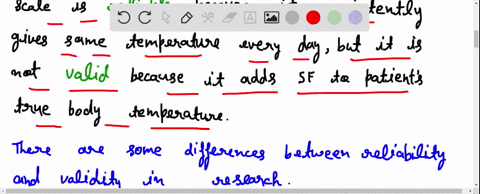 scale is tently
gives same temperature every day, but it is
not valid because it adds SF to patient's
true body temperature.
There are some differences between reliability
and validity in research.